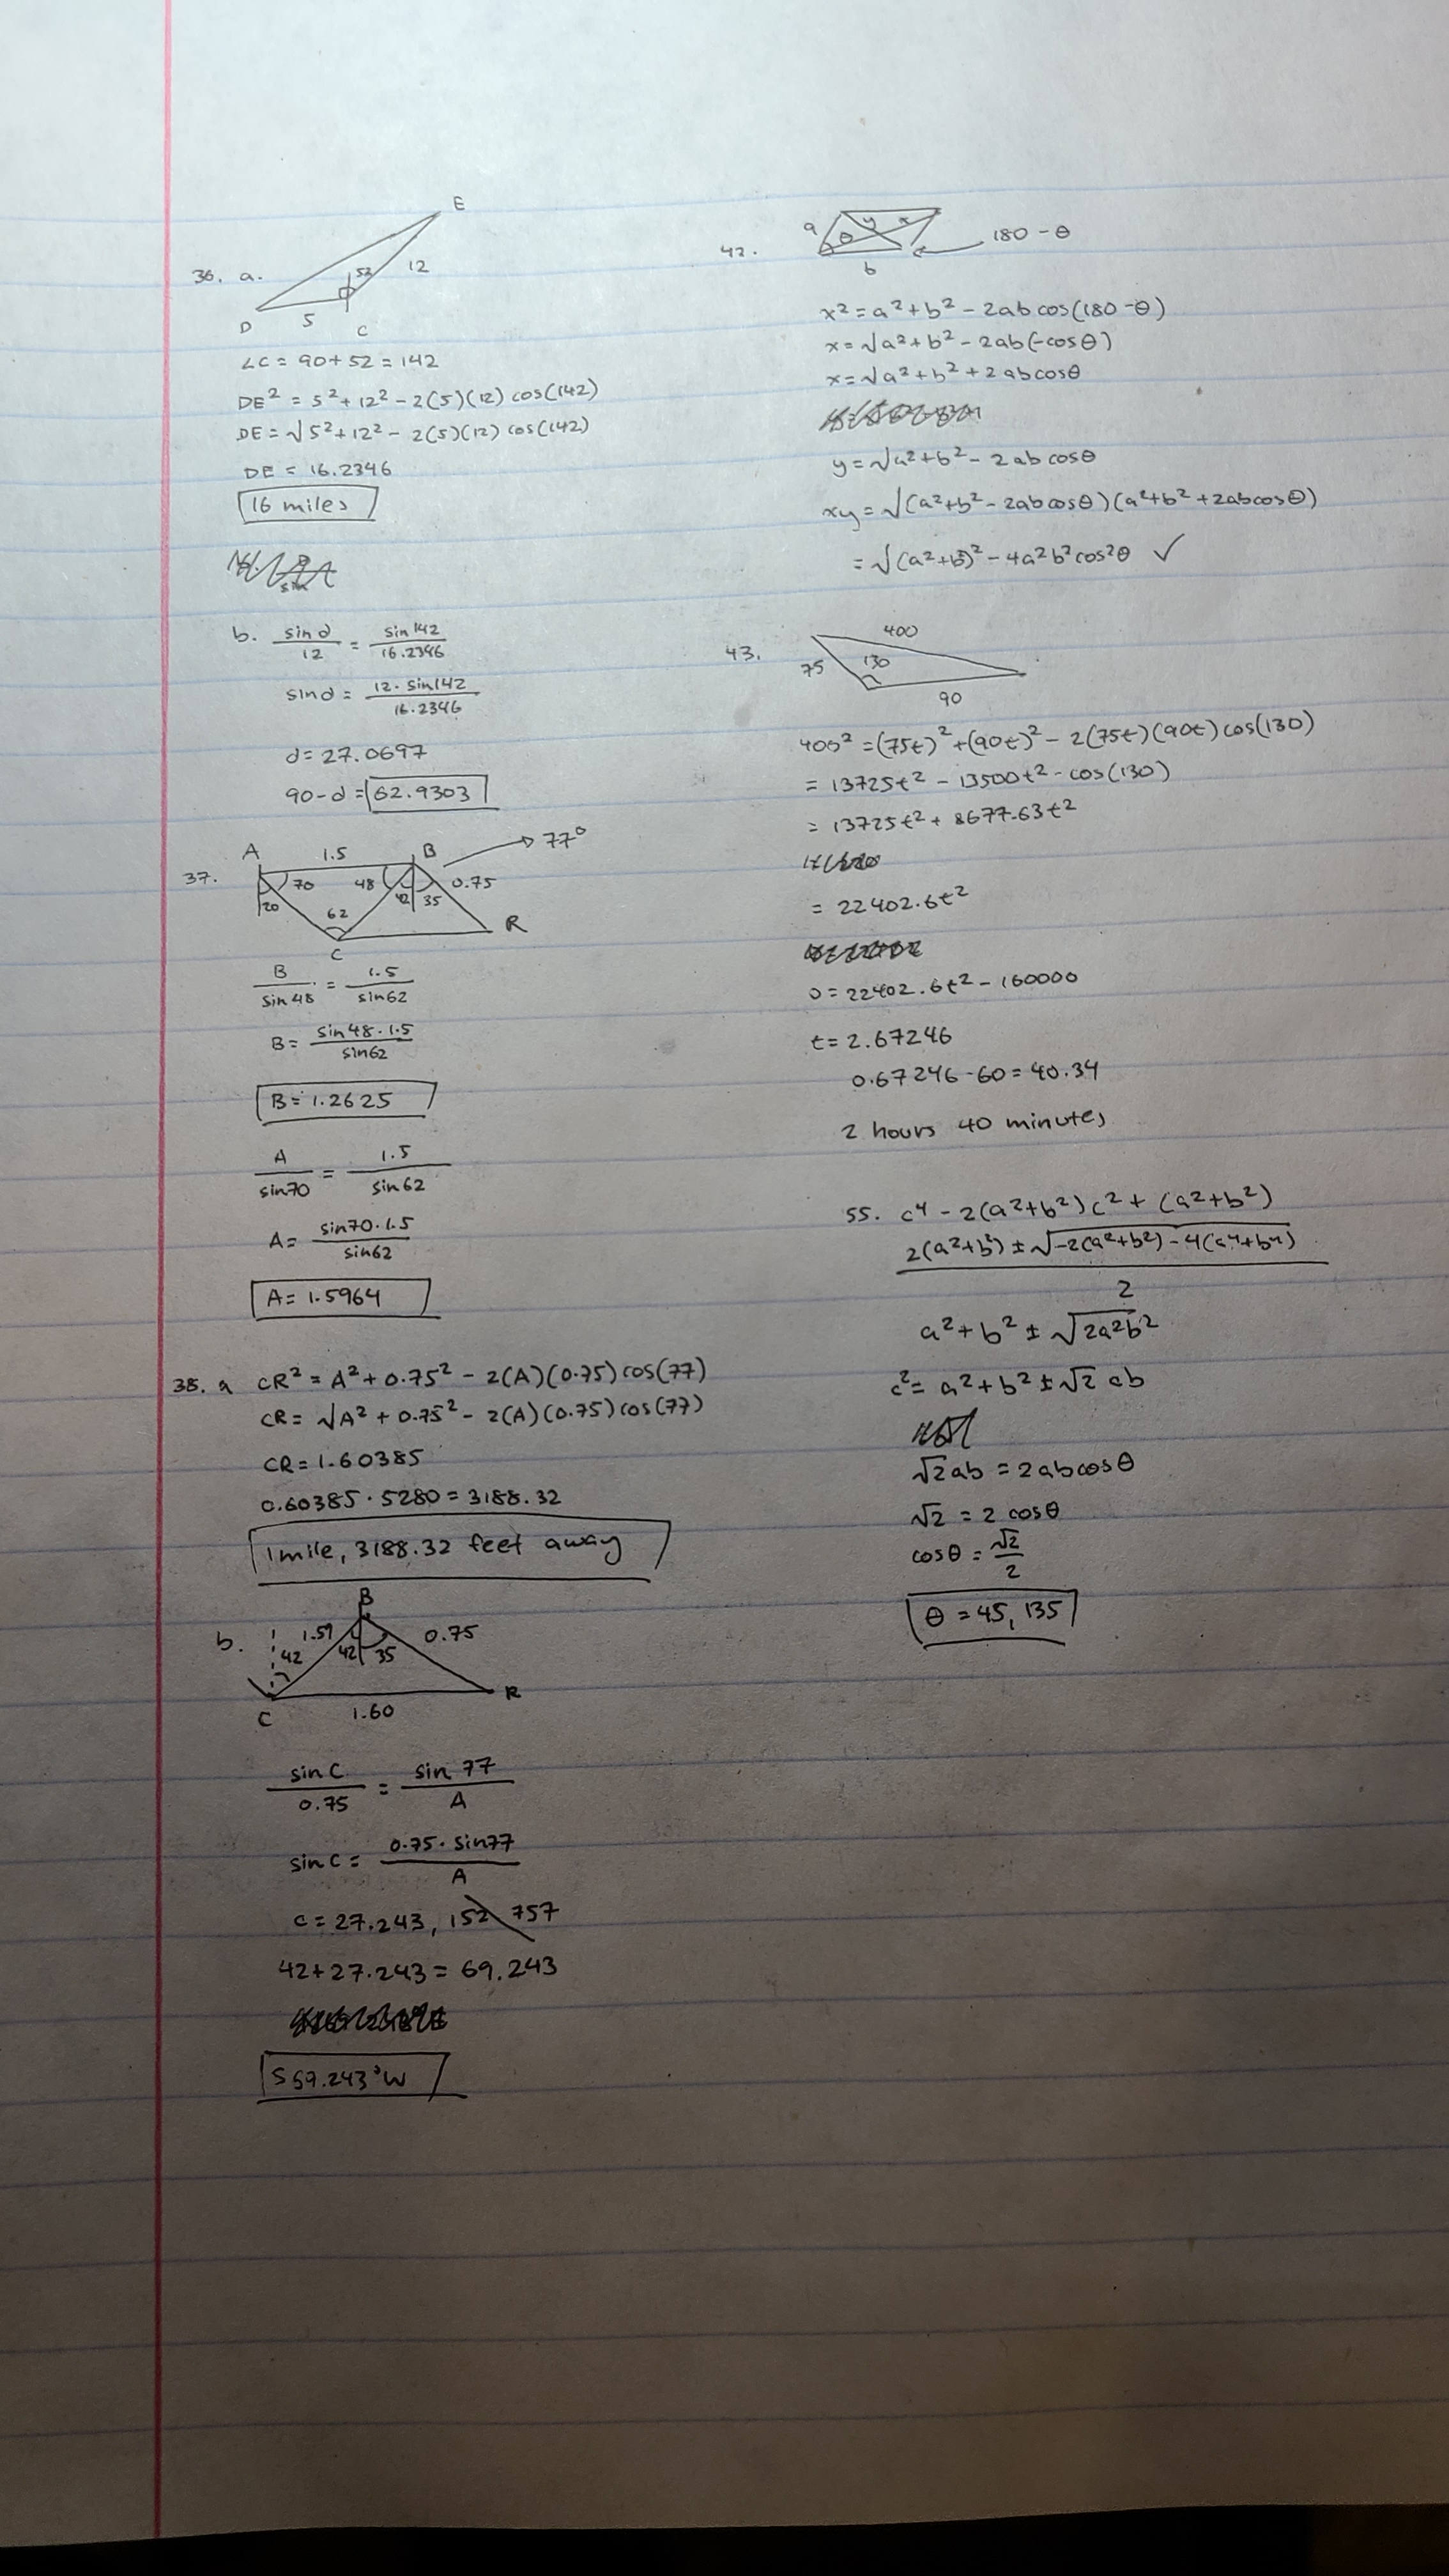 36. a.
E
52
12
D
5
C
∠C = 90+52 = 142
DE² = 5²+12² - 2(5)(12) cos(142)
DE = √5²+12² - 2(5)(12) cos(142)
DE = 16.2346
16 miles
sin
b. sin d / 12 = sin 142 / 16.2346
sin d = 12 · sin 142 / 16.2346
d = 27.0697
90 - d = 62.9303
37.
A
1.5
B
77°
70
48
0.75
20
42
35
62
C
R
B / sin 48 = 1.5 / sin 62
B = sin 48 · 1.5 / sin 62
B = 1.2625
A / sin 70 = 1.5 / sin 62
A = sin 70 · 1.5 / sin 62
A = 1.5964
38. a CR² = A² + 0.75² - 2(A)(0.75) cos(77)
CR = √A² + 0.75² - 2(A)(0.75) cos(77)
CR = 1.60385
0.60385 · 5280 = 3188.32
1 mile, 3188.32 feet away
b.
B
1.59
0.75
42
42
35
C
R
1.60
sin C / 0.75 = sin 77 / A
sin C = 0.75 · sin 77 / A
C = 27.243, 152.757
42+27.243 = 69.243
S 69.243° W
42.
a
θ
y
x
b
180 - θ
x² = a² + b² - 2ab cos(180 - θ)
x = √a² + b² - 2ab(-cosθ)
x = √a² + b² + 2abcosθ
y = √a² + b² - 2abcosθ
xy = √(a²+b² - 2abcosθ)(a²+b² + 2abcosθ)
= √(a²+b²)² - 4a²b²cos²θ ✓
43.
400
75
130
90
400² = (75t)² + (90t)² - 2(75t)(90t) cos(130)
= 13725t² - 13500t² · cos(130)
= 13725t² + 8677.63t²
= 22402.6t²
0 = 22402.6t² - 160000
t = 2.67246
0.67246 · 60 = 40.34
2 hours 40 minutes
55. c⁴ - 2(a²+b²)c² + (a²+b²)
2(a²+b²) ± √-2(a²+b²) - 4(a⁴+b⁴) / 2
a² + b² ± √2a²b²
c² = a² + b² ± √2 ab
√2ab = 2abcosθ
√2 = 2 cosθ
cosθ = √2 / 2
θ = 45, 135